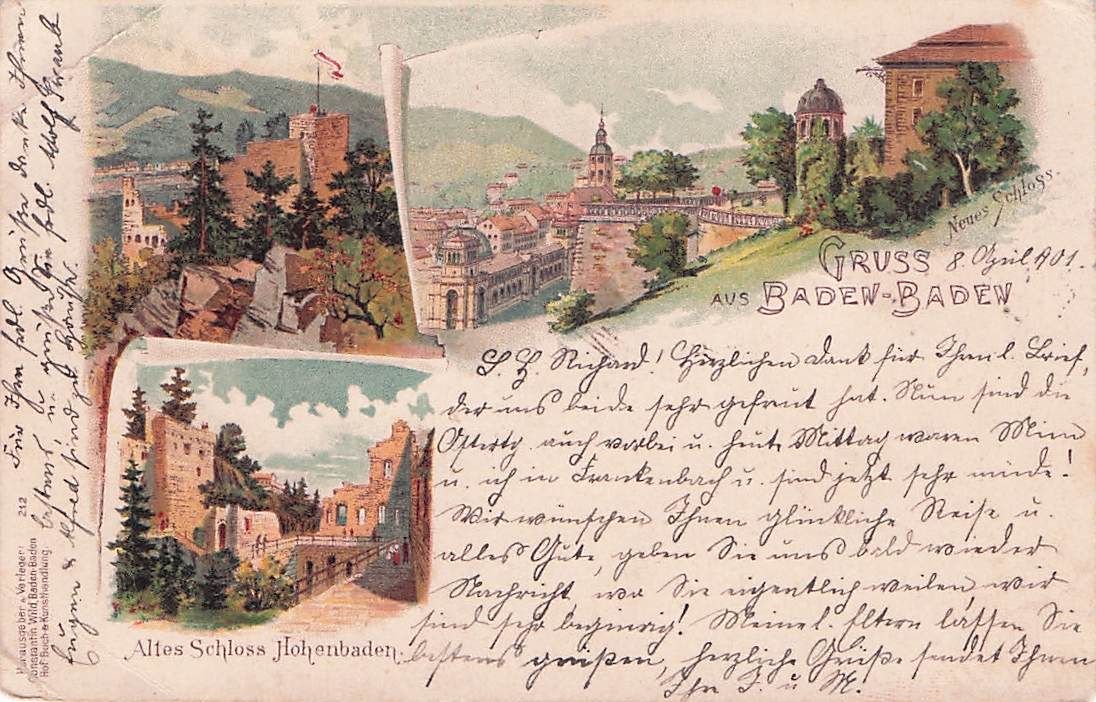 Neues Schloss.
GRUSS 8. April 1901.
AUS BADEN-BADEN
L. H. Richard! Herzlichen Dank für Ihren l. Brief,
der uns beide sehr gefreut hat. Nun sind die
Ostertg. auch vorbei u. heut. Mittag waren Mimi
u. ich in Frankenbach u. sind jetzt sehr müde!
Wir wünschen Ihnen glückliche Reise u.
alles Gute, geben Sie uns bald wieder
Nachricht, wo Sie eigentlich weilen, wir
sind sehr begierig! Meine l. Eltern lassen Sie
bestens grüßen, herzliche Grüße sendet Ihnen
Ihr u. M.
Altes Schloss Hohenbaden.
Für Ihre frdl. Grüße danke Ihnen
bestens, u. grüßt Sie frdl. Adolf
Eugen & Alfred sind zur
212
Herausgeber & Verleger:
Constantin Wild, Baden-Baden
Hof-Buch & Kunsthandlung.